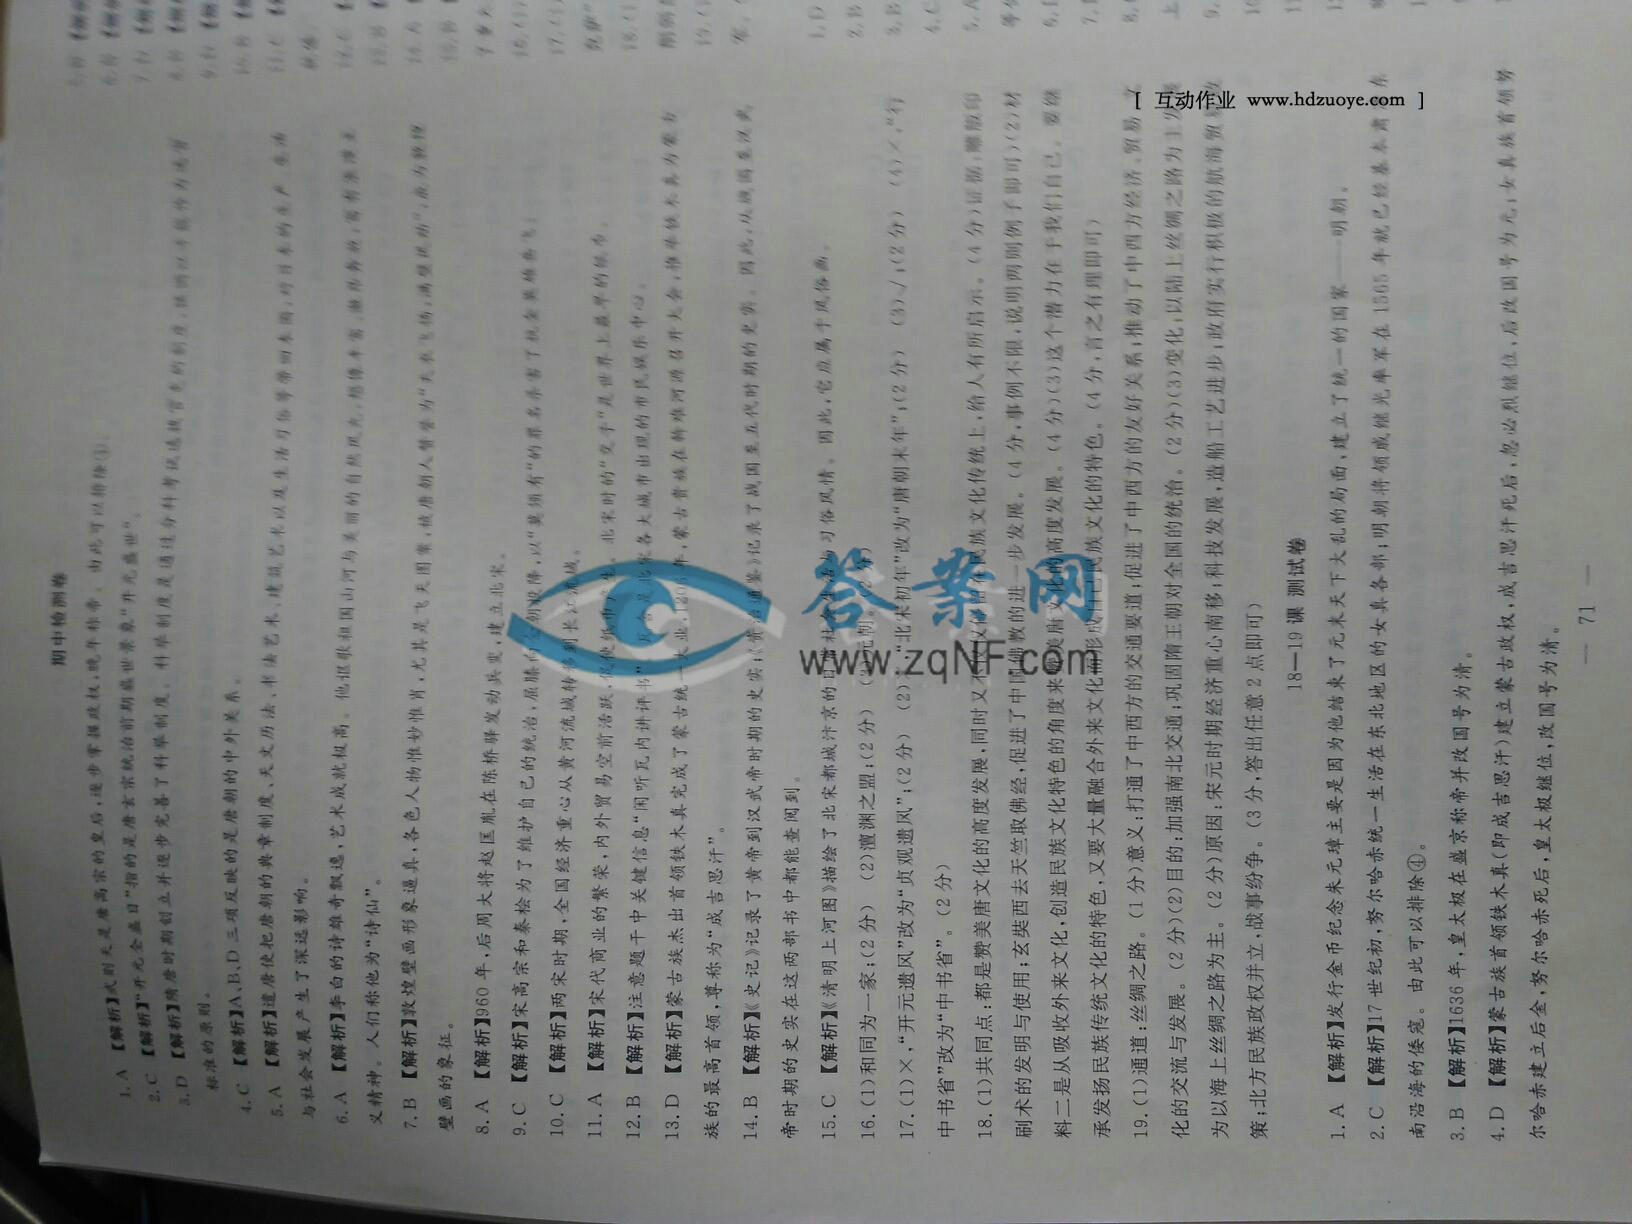 期中检测卷
1. A 【解析】武则天是唐高宗的皇后，逐步掌握政权，晚年称帝。由此可以排除③。
2. C 【解析】“开元全盛日”指的是唐玄宗统治前期盛世景象“开元盛世”。
3. D 【解析】隋唐时期创立并逐步完善了科举制度。科举制度是通过分科考试选拔官吏的制度，
标准的原则。
4. C 【解析】A、B、D三项反映的是唐朝的中外关系。
5. A 【解析】遣唐使把唐朝的典章制度、天文历法、书法艺术、建筑艺术以及生活习俗等带回本国，对日本的生产、生活
与社会发展产生了深远影响。
6. A 【解析】李白的诗雄奇飘逸，艺术成就极高。他讴歌祖国山河与美丽的自然风光，想像丰富，
义精神。人们称他为“诗仙”。
7. B 【解析】敦煌壁画形象逼真，各色人物惟妙惟肖，尤其是飞天图案，被唐朝人赞誉为“天衣飞扬，满壁风动”，成为敦煌
壁画的象征。
8. A 【解析】960年，后周大将赵匡胤在陈桥驿发动兵变，建立北宋。
9. C 【解析】宋高宗和秦桧为了维护自己的统治，屈膝的向金朝投降，以“莫须有”的罪名杀害了抗金英雄岳飞。
10. C 【解析】两宋时期，全国经济重心从黄河流域转移到长江流域。
11. A 【解析】宋代商业的繁荣，内外贸易空前活跃，促使纸币产生。北宋时的“交子”是世界上最早的纸币。
12. B 【解析】注意题干中关键信息“闲听瓦内讲评书”，瓦子是北宋各大城市出现的市民娱乐中心。
13. D 【解析】蒙古族杰出首领铁木真完成了蒙古统一大业，1206年，蒙古贵族在斡难河源召开大会，推举铁木真为蒙古
族的最高首领，尊称为“成吉思汗”。
14. B 【解析】《史记》记录了黄帝到汉武帝时期的史实；《资治通鉴》记录了战国至五代时期的史实。因此，从战国至汉武
帝时期的史实在这两部书中都能查阅到。
15. C 【解析】《清明上河图》描绘了北宋都城汴京的日常社会生活与习俗风情。因此，它应属于风俗画。
16. (1)和同为一家；(2分) (2)澶渊之盟；(2分) (3)元朝。(2分)
17. (1)×，“开元遗风”改为“贞观遗风”；(2分) (2)×，“北宋初年”改为“唐朝末年”；(2分) (3)√；(2分) (4)×，“行
中书省”改为“中书省”。(2分)
18. (1)共同点：都是赞美唐文化的高度发展，同时又不仅仅停留在民族文化传统上，给人有所启示。(4分)证据：雕版印
刷术的发明与使用；玄奘西去天竺取佛经，促进了中国佛教的进一步发展。(4分，事例不限，说明两则例子即可)(2)材
料二是从吸收外来文化，创造民族文化特色的角度来赞美唐文化的高度发展。(4分)(3)这个潜力在于我们自己。要继
承发扬民族传统文化的特色，又要大量融合外来文化而形成自己民族文化的特色。(4分，言之有理即可)
19. (1)通道：丝绸之路。(1分)意义：打通了中西方的交通要道；促进了中西方的友好关系；推动了中西方经济、贸易、文
化的交流与发展。(2分)(2)目的：加强南北交通；巩固隋王朝对全国的统治。(2分)(3)变化：以陆上丝绸之路为主发展
为以海上丝绸之路为主。(2分)原因：宋元时期经济重心南移；科技发展，造船工艺进步；政府实行积极的航海贸易政
策；北方民族政权并立，战事纷争。(3分，答出任意2点即可)
18—19课 测试卷
1. A 【解析】发行金币纪念朱元璋主要是因为他结束了元末天下大乱的局面，建立了统一的国家——明朝。
2. C 【解析】17世纪初，努尔哈赤统一生活在东北地区的女真各部；明朝将领戚继光率军在1565年就已经基本肃清东
南沿海的倭寇。由此可以排除④。
3. B 【解析】1636年，皇太极在盛京称帝并改国号为清。
4. D 【解析】蒙古族首领铁木真(即成吉思汗)建立蒙古政权，成吉思汗死后，忽必烈继位，后改国号为元；女真族首领努
尔哈赤建立后金，努尔哈赤死后，皇太极继位，改国号为清。
— 71 —
[ 互动作业 www.hdzuoye.com ]
答案网
www.zqNF.com